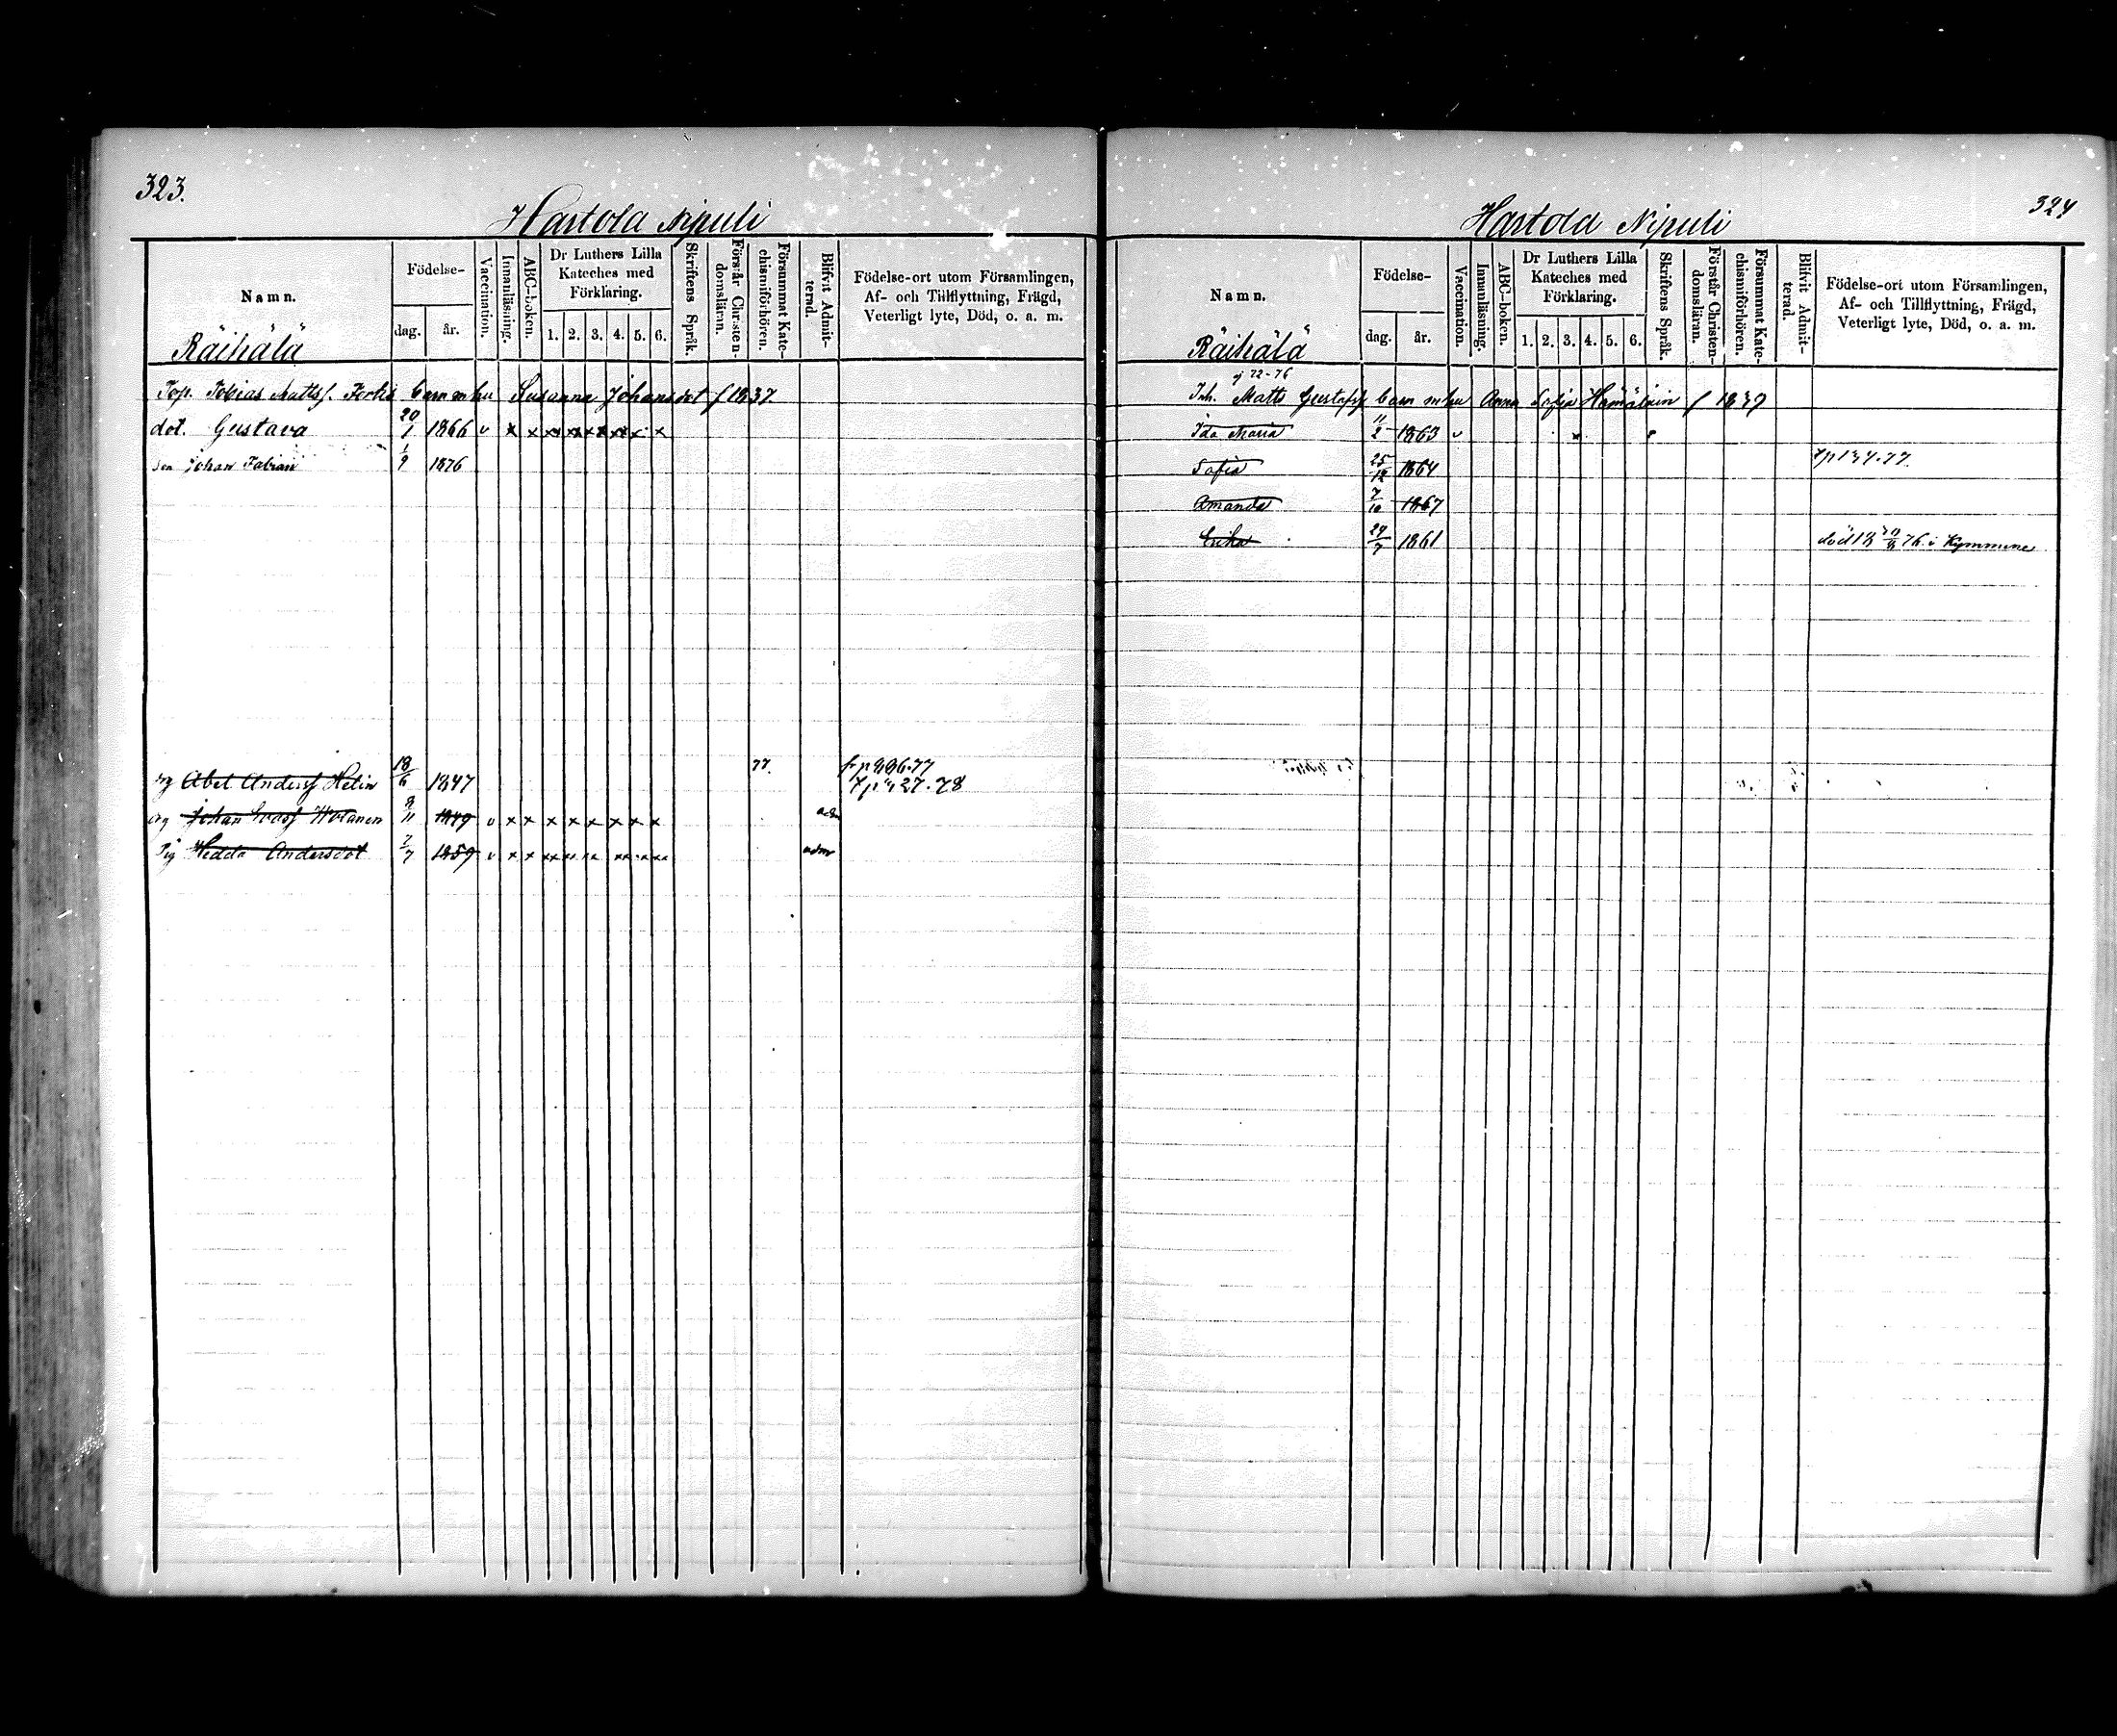 323.
Hartola Nipuli
Namn.
Födelse-
dag.
år.
Vaccination.
Innanläsning.
ABC-boken.
Dr Luthers Lilla
Kateches med
Förklaring.
1. 2. 3. 4. 5. 6.
Skriftens Språk.
Förstår Christen-
domsläran.
Försummat Kate-
chismiförhören.
Blifvit Admit-
terad.
Födelse-ort utom Församlingen,
Af- och Tillflyttning, Frägd,
Veterligt lyte, Död, o. a. m.
Räihälä
Tobias Matts barn m hu Susanna Johansdot f 1837
dot. Gustava 20/7 1866 v x x x x x x x x
son Johan Fabian 1/9 1876
Abel Anderss Helin 18/6 1847 77. fr p 296.77
27.78
Johan 9/11 1849 v x x x x x x x x adm
Pig Hedda Andersdot 2/7 1859 v x x xx xx xx xx xx xx adm
324
Hartola Nipuli
Namn.
Födelse-
dag.
år.
Vaccination.
Innanläsning.
ABC-boken.
Dr Luthers Lilla
Kateches med
Förklaring.
1. 2. 3. 4. 5. 6.
Skriftens Språk.
Förstår Christen-
domsläran.
Försummat Kate-
chismiförhören.
Blifvit Admit-
terad.
Födelse-ort utom Församlingen,
Af- och Tillflyttning, Frägd,
Veterligt lyte, Död, o. a. m.
Räihälä
ej 72-76
Inh. Matts Gustafss barn m hu Anna Sofia Hämäläin f 1839
Ida Maria 11/2 1863 v x
Sofia 25/12 1864
Amanda 7/10 1867
Erika 29/7 1861 död 18 76 i Kymmene